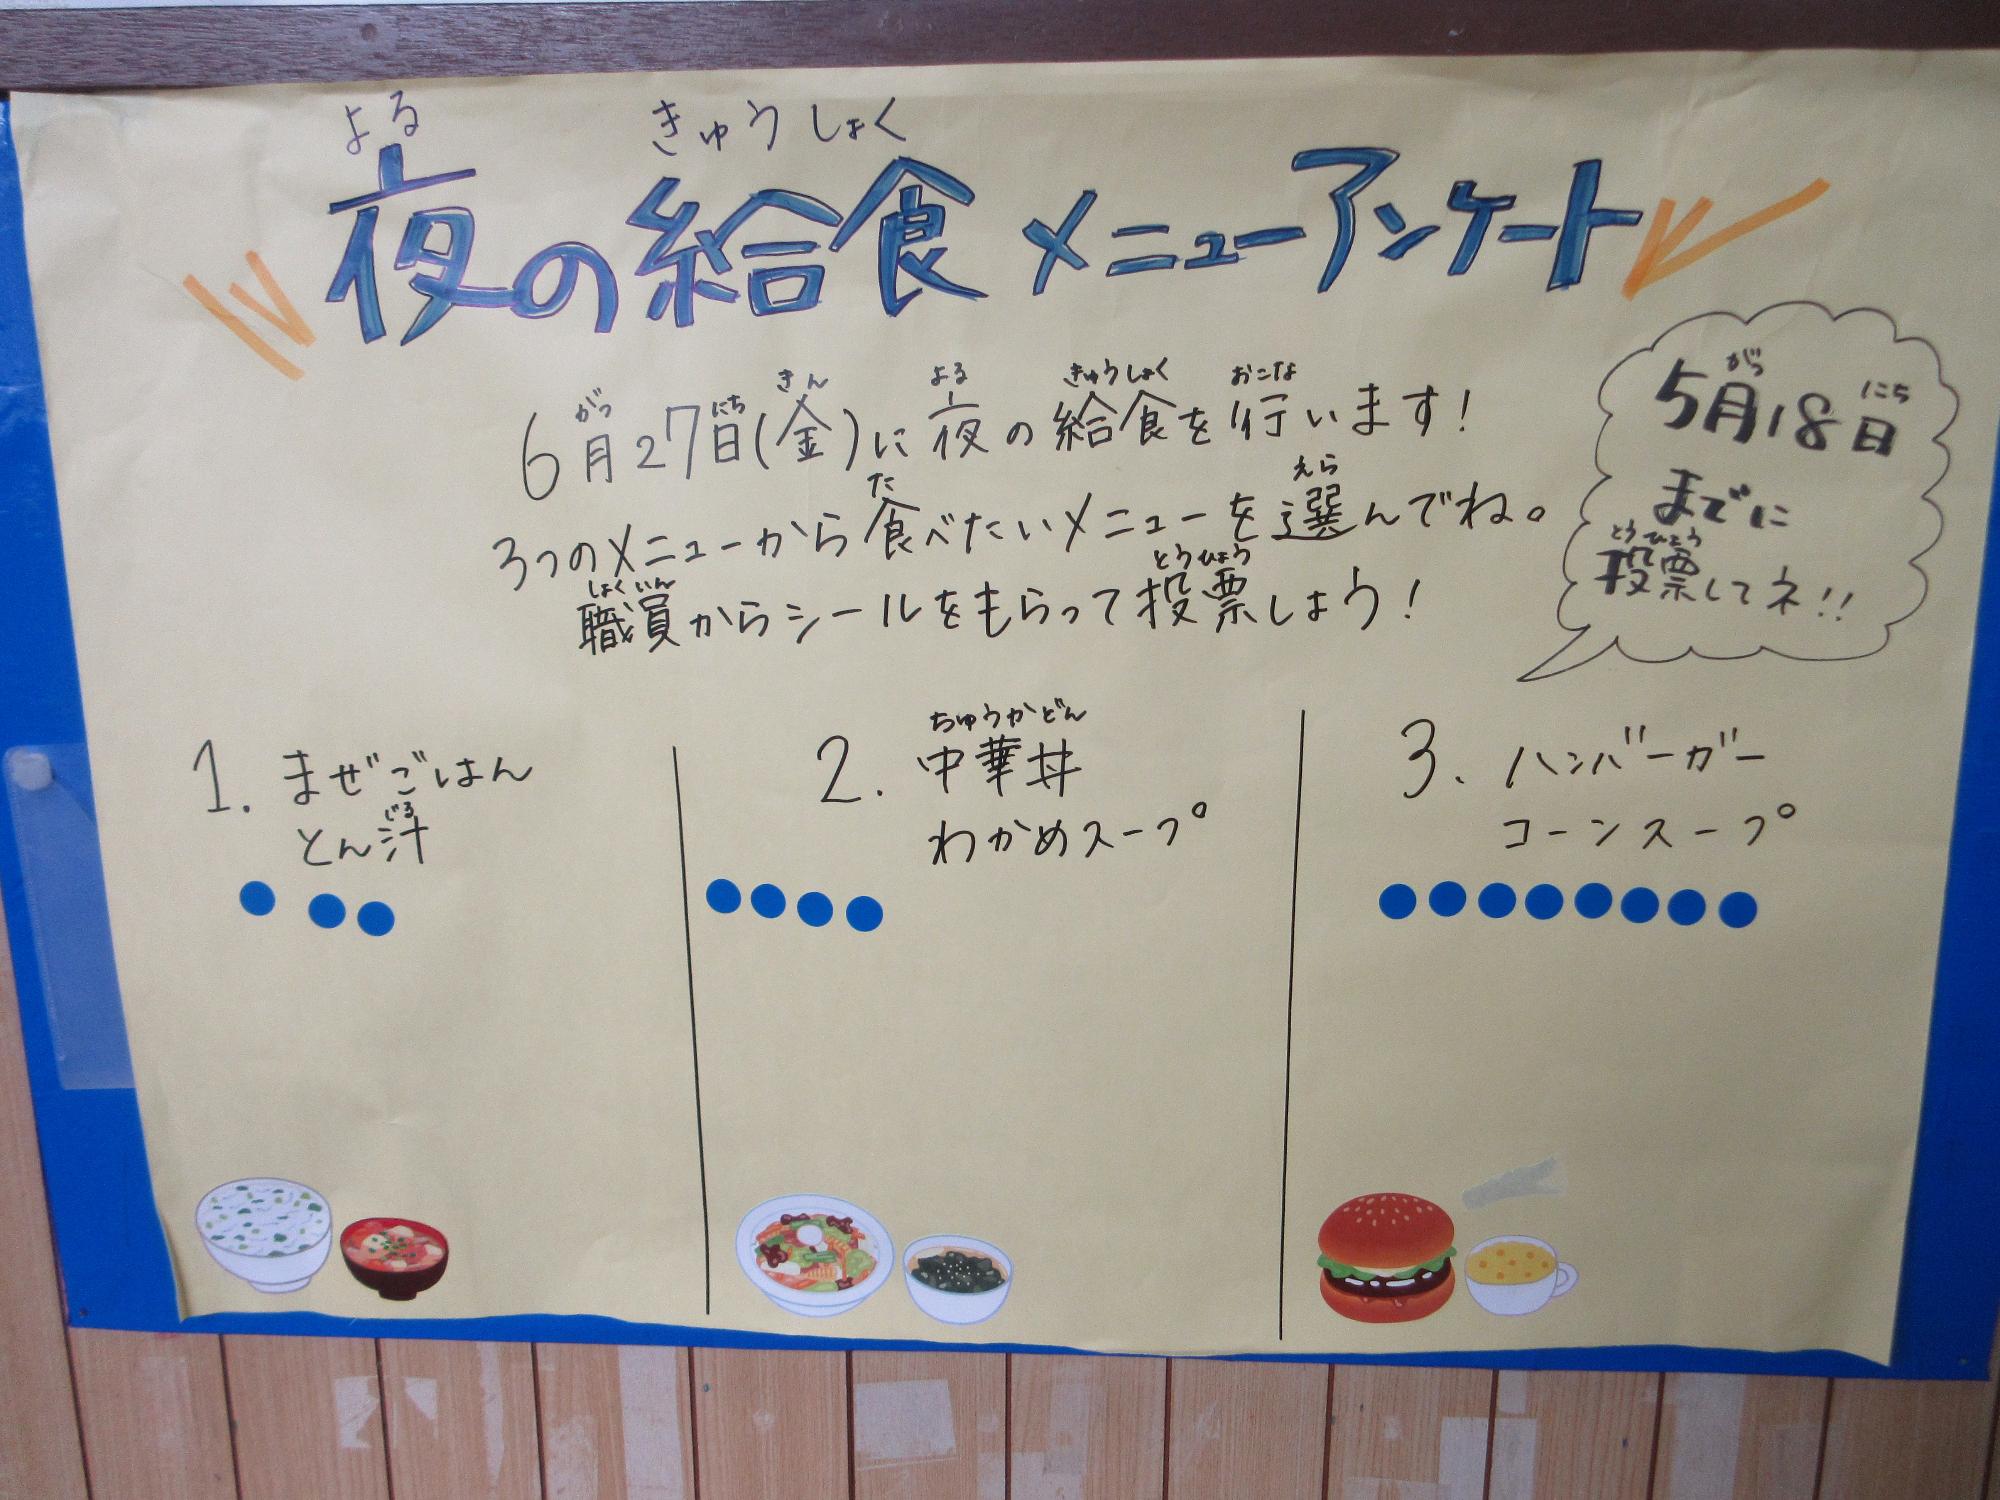 よる きゅうしょく
夜の給食メニューアンケート
がつ にち きん よる きゅうしょく おこな
6月27日(金)に夜の給食を行います!
た えら
3つのメニューから食べたいメニューを選んでね。
しょくいん とうひょう
職員からシールをもらって投票しよう!
がつ にち
5月18日
までに
とうひょう
投票してネ!!
1. まぜごはん
じる
とん汁
ちゅうかどん
2. 中華丼
わかめスープ
3. ハンバーガー
コーンスープ